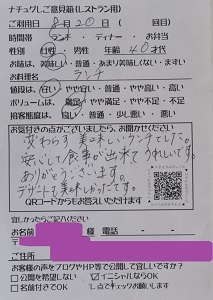 ナチュグしご意見箱(レストラン用)
ご利用日 8月20日 ( 回目)
時間帯 ランチ・ディナー・お弁当
性別 女性・男性 年齢 40才代
お味は、美味しい・普通・あまり美味しくない・まずい
お料理名 ランチ
値段は、安い・やや安い・普通・やや高い・高い
ボリュームは、満足・やや満足・やや不足・不足
接客態度は、良い・普通・少し悪い・悪い
お気付きの点がございましたら、お聞かせください
変わらず美味しいランチでした。
安心して食事が出来てうれしいです。
ありがとうございます。
デザートも美味しかったです。
QRコードからもお答えいただけます
宜しかったらご記入ください
お名前 様 電話 - -
〒
ご住所
お客様の声をブログやHP等で公開して宜しいですか?
□公開を希望しない ☑イニシャルならOK
□名前付きでOK レ点でチェックお願いします